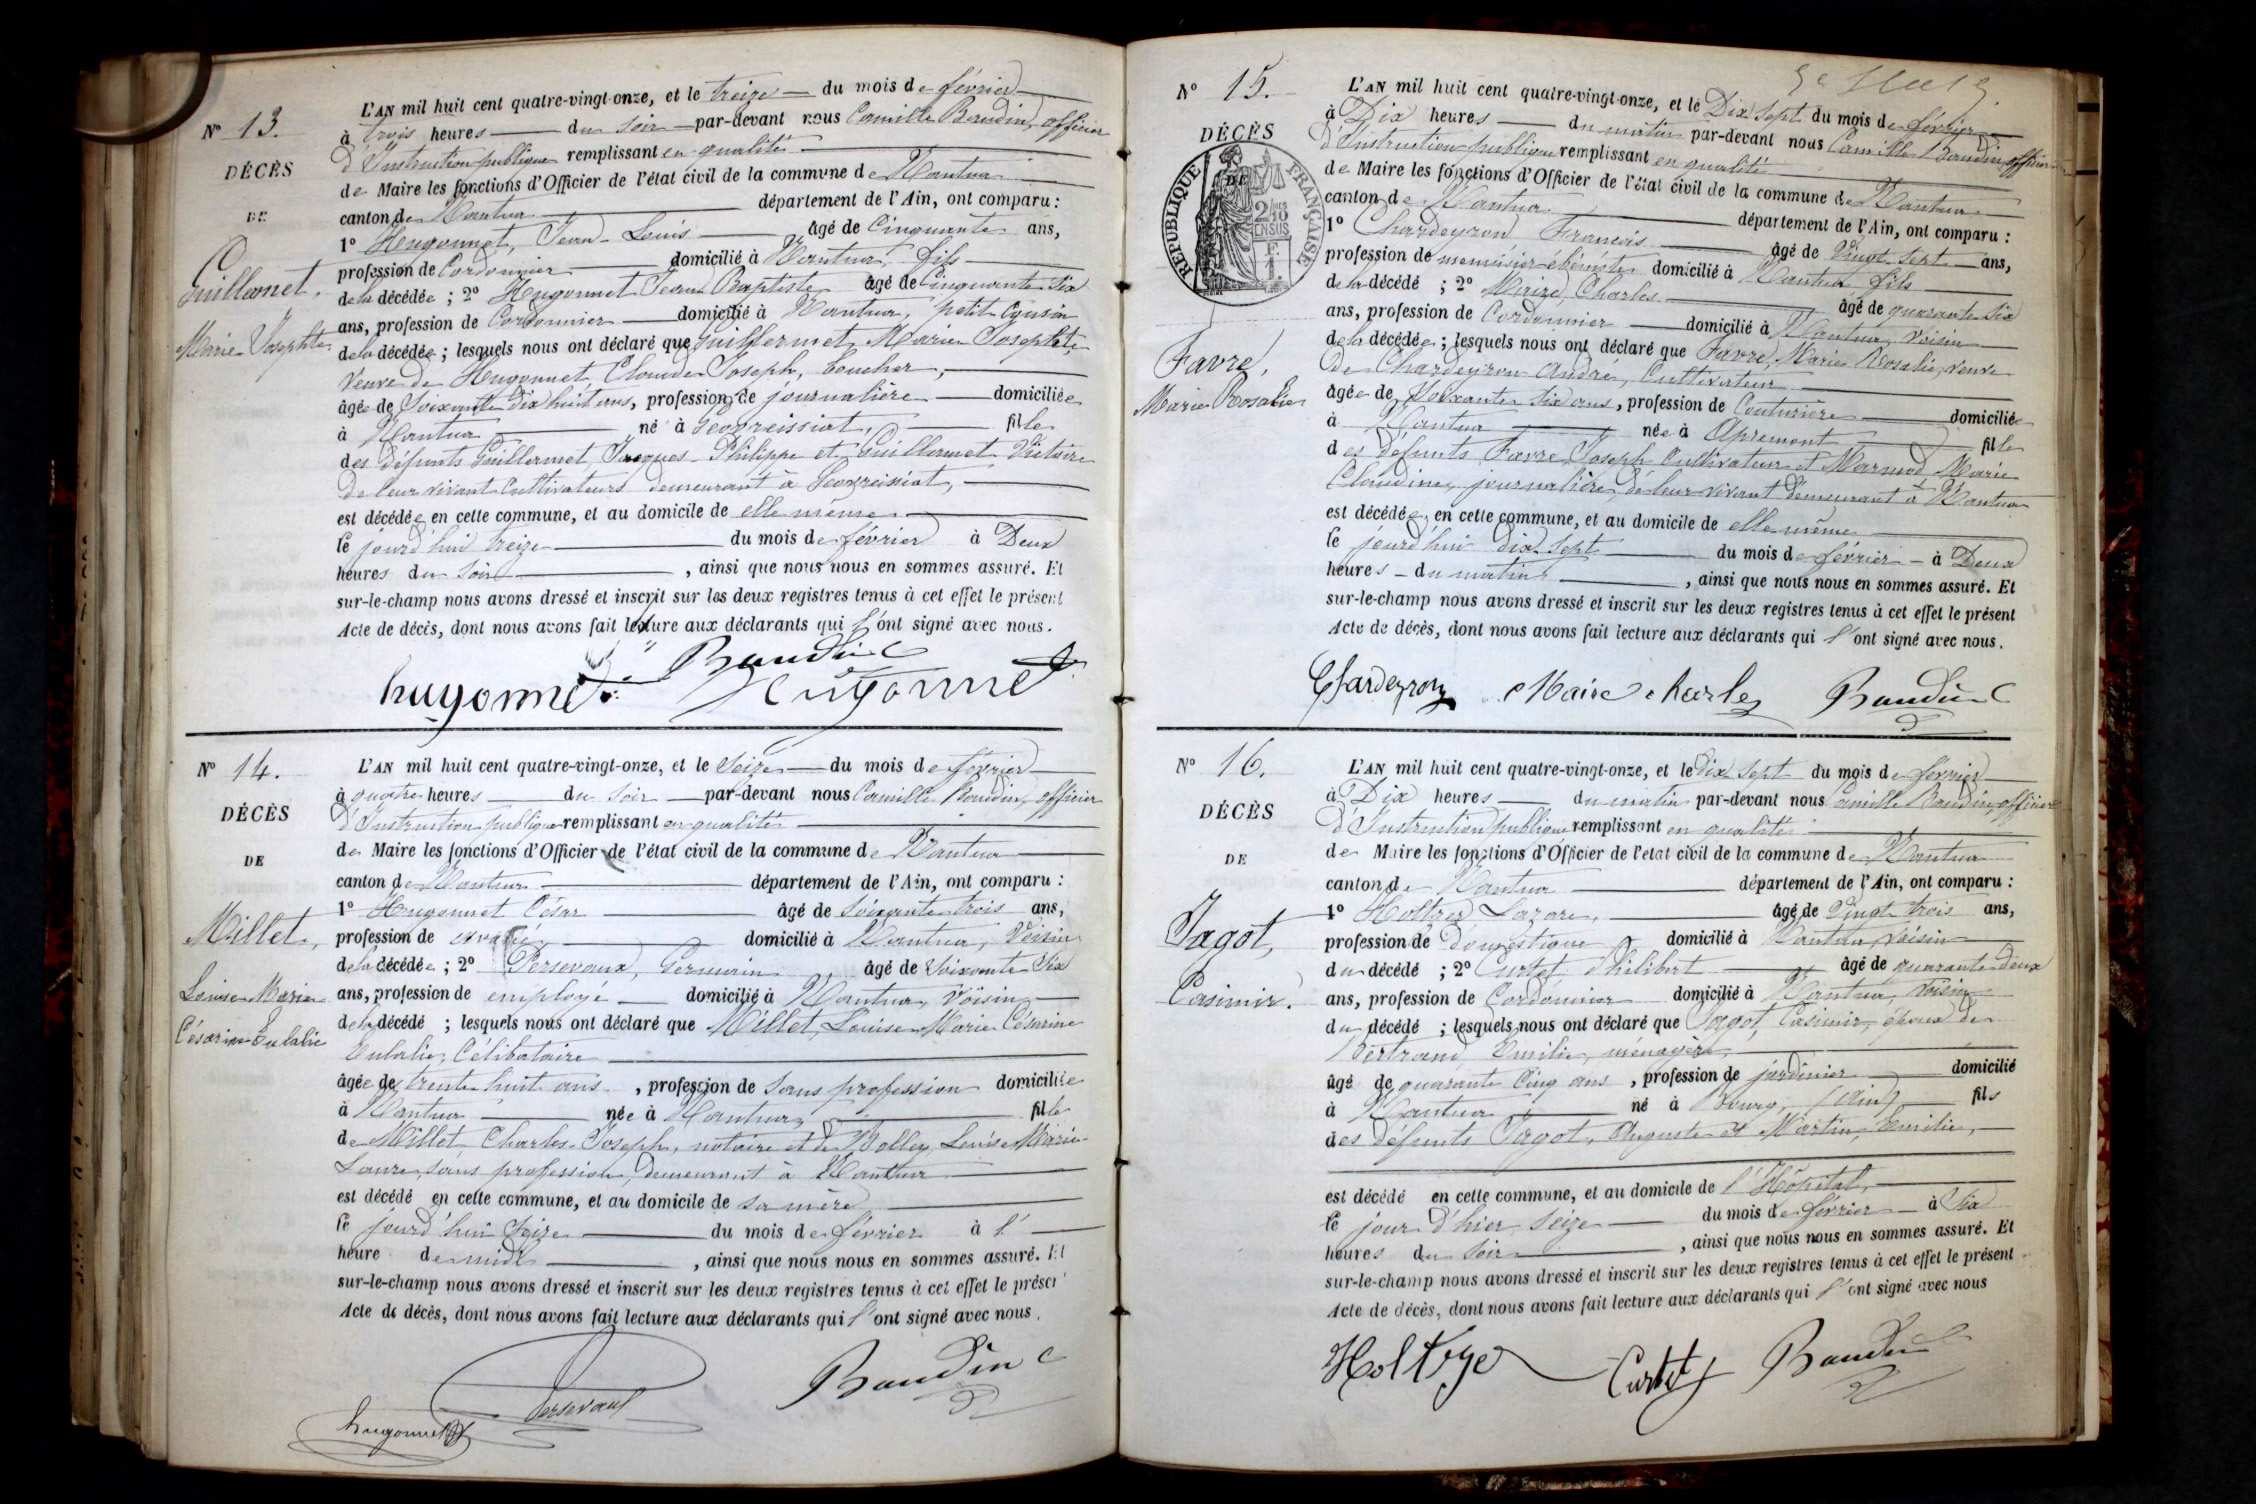 Nº 13.
DÉCÈS
DE
Guillermet,
Marie Josephte
L'AN mil huit cent quatre-vingt-onze, et le treize du mois de février
à trois heures du soir par-devant nous Camille Baudin, officier
d'Instruction publique remplissant en qualité
de Maire les fonctions d'Officier de l'état civil de la commune de Nantua
canton de Nantua département de l'Ain, ont comparu :
1º Hugonnet, Jean-Louis âgé de Cinquante ans,
profession de Cordonnier domicilié à Nantua, fils
de la décédée ; 2º Hugonnet Jean Baptiste âgé de Cinquante six
ans, profession de Cordonnier domicilié à Nantua, petit Cousin
de la décédée ; lesquels nous ont déclaré que Guillermet, Marie Josephte,
Veuve de Hugonnet, Claude Joseph, boucher,
âgée de Soixante dix huit ans, profession de journalière domiciliée
à Nantua né à Geovreissiat, fille
des défunts Guillermet Jacques-Philippe et Guillermet Victoire
de leur vivant Cultivateurs demeurant à Geovreissiat,
est décédée en cette commune, et au domicile de elle même
le jourd'hui treize du mois de février à Deux
heures du soir , ainsi que nous nous en sommes assuré. Et
sur-le-champ nous avons dressé et inscrit sur les deux registres tenus à cet effet le présent
Acte de décès, dont nous avons fait lecture aux déclarants qui l'ont signé avec nous.
Baudin C
hugonnet Hugonnet
Nº 14.
DÉCÈS
DE
Millet,
Louise-Marie
Césarine-Eulalie
L'AN mil huit cent quatre-vingt-onze, et le Seize du mois de février
à quatre heures du soir par-devant nous Camille Baudin, officier
d'Instruction publique remplissant en qualité
de Maire les fonctions d'Officier de l'état civil de la commune de Nantua
canton de Nantua département de l'Ain, ont comparu :
1º Hugonnet César âgé de Soixante trois ans,
profession de domicilié à Nantua, Voisin
de la décédée ; 2º Persevaux, Germain âgé de Soixante Six
ans, profession de employé domicilié à Nantua, Voisin
de la décédé ; lesquels nous ont déclaré que Millet, Louise Marie Césarine
Eulalie, Célibataire
âgée de trente huit ans , profession de Sans profession domiciliée
à Nantua née à Nantua, fille
de Millet, Charles Joseph, notaire et de Bolley Louise Marie
Laure, sans profession, demeurant à Nantua
est décédé en cette commune, et au domicile de sa mère
le jourd'hui Seize du mois de février à l'
heure de midi , ainsi que nous nous en sommes assuré. Et
sur-le-champ nous avons dressé et inscrit sur les deux registres tenus à cet effet le présent
Acte de décès, dont nous avons fait lecture aux déclarants qui l'ont signé avec nous.
hugonnet Persevaux Baudin C
Nº 15.
DÉCÈS
DE
RÉPUBLIQUE FRANÇAISE
2/10 EN SUS
Favre,
Marie Rosalie
L'AN mil huit cent quatre-vingt-onze, et le Dix Sept du mois de février
à Dix heures du matin par-devant nous Camille Baudin, officier
d'Instruction publique remplissant en qualité
de Maire les fonctions d'Officier de l'état civil de la commune de Nantua
canton de Nantua département de l'Ain, ont comparu :
1º Chardeyron François âgé de Vingt Sept ans,
profession de menuisier ébéniste domicilié à Nantua, fils
de la décédé ; 2º Maire, Charles âgé de quarante Six
ans, profession de Cordonnier domicilié à Nantua, Voisin
de la décédée ; lesquels nous ont déclaré que Favre, Marie Rosalie, veuve
de Chardeyron André, Cultivateur
âgée de Soixante Six ans , profession de Couturière domiciliée
à Nantua née à Apremont fille
des défunts Favre, Joseph Cultivateur et Marmod Marie
Claudine, journalière, de leur vivant demeurant à Nantua
est décédée en cette commune, et au domicile de elle même
le jourd'hui dix sept du mois de février à Deux
heures du matin , ainsi que nous nous en sommes assuré. Et
sur-le-champ nous avons dressé et inscrit sur les deux registres tenus à cet effet le présent
Acte de décès, dont nous avons fait lecture aux déclarants qui l'ont signé avec nous.
Chardeyron Maire charles Baudin C
Nº 16.
DÉCÈS
DE
Jagot,
Casimir.
L'AN mil huit cent quatre-vingt-onze, et le dix Sept du mois de février
à Dix heures du matin par-devant nous Camille Baudin, officier
d'Instruction publique remplissant en qualité
de Maire les fonctions d'Officier de l'état civil de la commune de Nantua
canton de Nantua département de l'Ain, ont comparu :
1º Holtzer Lazare, âgé de Vingt trois ans,
profession de Domestique domicilié à Nantua, voisin
du décédé ; 2º Curtet Philibert âgé de quarante deux
ans, profession de Cordonnier domicilié à Nantua, Voisin
du décédé ; lesquels nous ont déclaré que Jagot, Casimir, époux de
Bertrand, Emilie, ménagère,
âgé de quarante Cinq ans , profession de jardinier domicilié
à Nantua né à Bourg, (Ain) fils
des défunts Jagot, Auguste et Martin, Emilie,
est décédé en cette commune, et au domicile de l'Hôpital,
le jour d'hier seize du mois de février à Six
heures du soir , ainsi que nous nous en sommes assuré. Et
sur-le-champ nous avons dressé et inscrit sur les deux registres tenus à cet effet le présent
Acte de décès, dont nous avons fait lecture aux déclarants qui l'ont signé avec nous
Curtet Baudin C